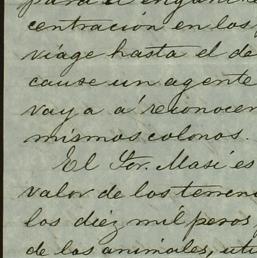 para el
centración en los
viáge hasta el de
cause un agente
vaya a' reconocer
mismos colonos.
El Sor. Masí es
valor de los terren
los diéz mil peros
de los animales, ut